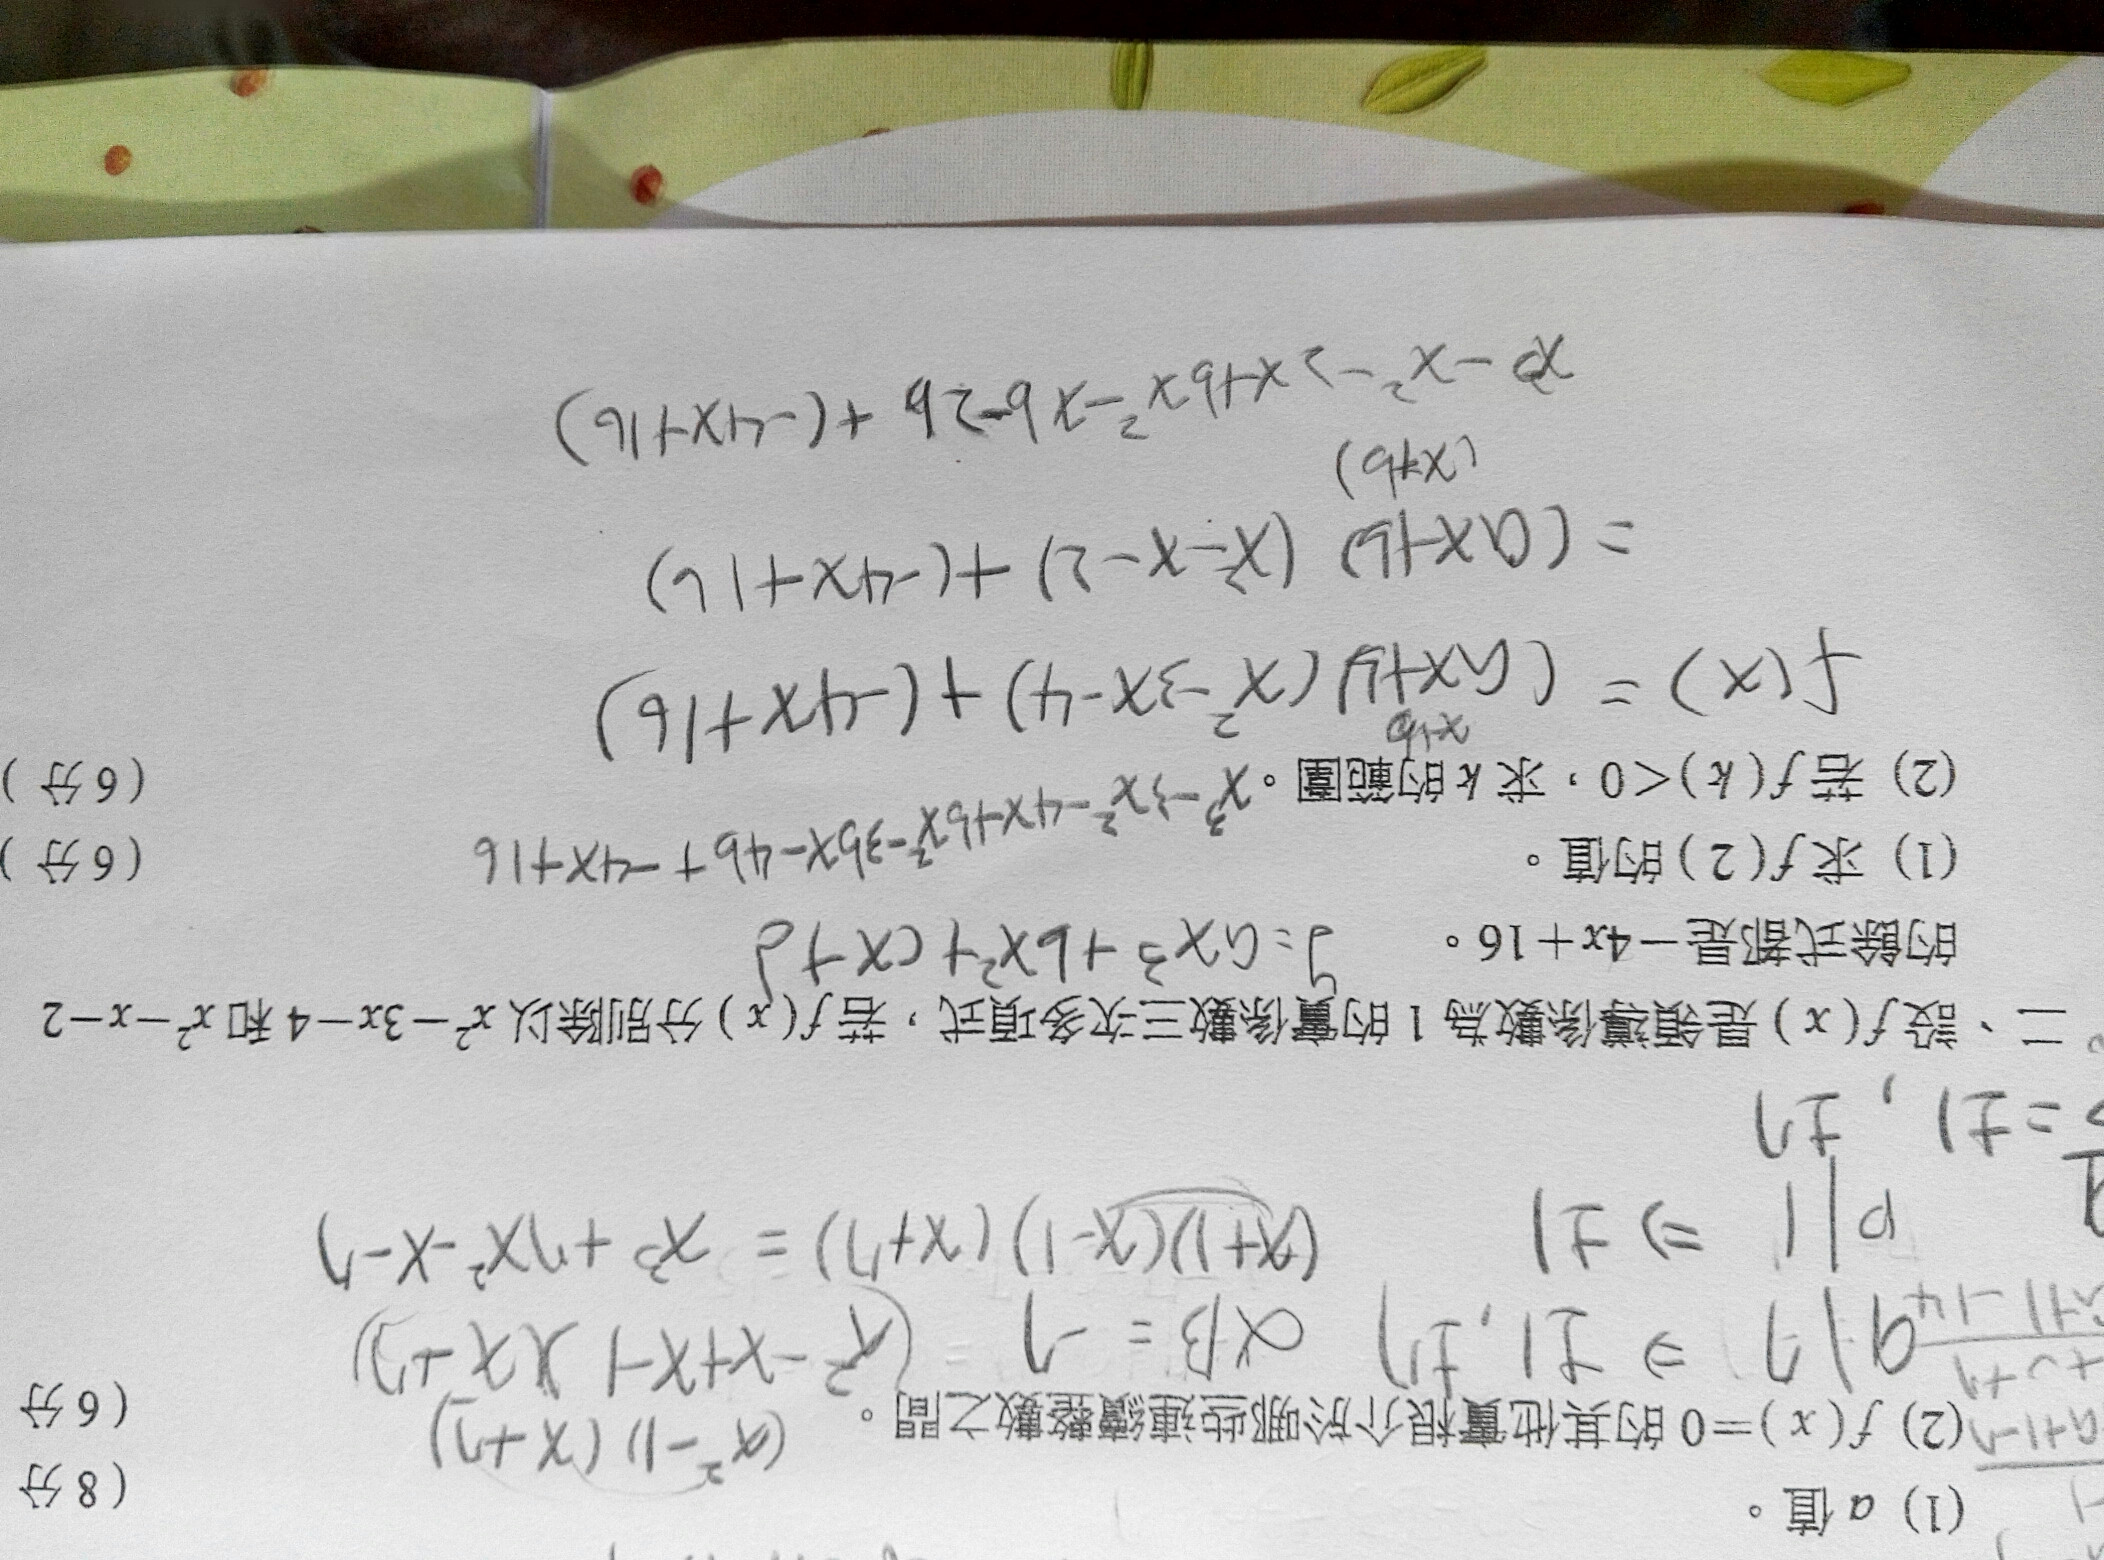 (1) a 值。 (8分
(x²-1)(x+7)
(2) f(x)=0 的其他實根介於哪些連續整數之間。 (6分
q|7 ⇒ ±1, ±7 αβ = 7 (x²-x+x-1)(x+7)
p|1 ⇒ ±1 (x+1)(x-1)(x+7) = x³+7x²-x-7
=±1, ±7
二、設 f(x) 是領導係數為 1 的實係數三次多項式，若 f(x) 分別除以 x²-3x-4 和 x²-x-2
的餘式都是 -4x+16。 y=ax³+bx²+cx+d
(1) 求 f(2) 的值。 (6分)
x³-3x²-4x+bx²-3bx-4b+-4x+16
(2) 若 f(k)<0，求 k 的範圍。 (6分)
x+b
f(x) = (ax+b)(x²-3x-4)+(-4x+16)
= (ax+b) (x²-x-2)+(-4x+16)
(x+b)
-x²-2x+bx²-xb-2b+(-4x+16)